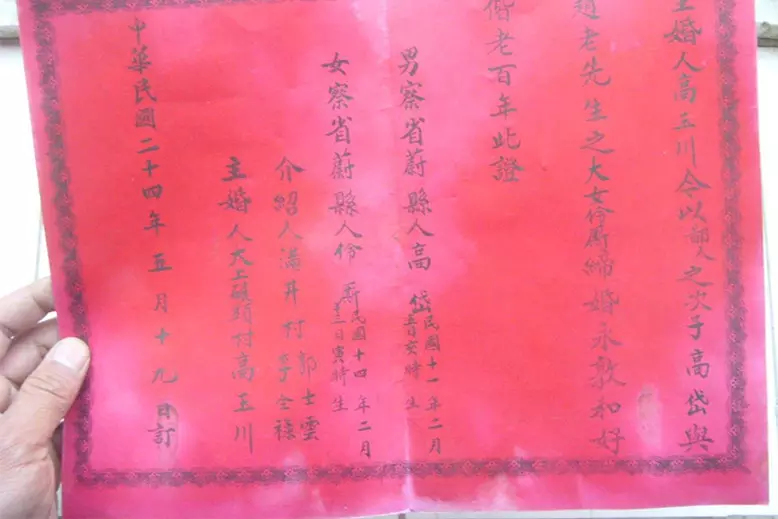 主婚人高玉川今以鄙人之次子高岱與
趙老先生之大女伶 締婚永敦和好
偕老百年此證
男察省蔚縣人高岱民國十一年二月
日亥時生
女察省蔚縣人伶 民國十四年二月
日寅時生
介紹人滿井村 郭士雲
李全祿
主婚人大上 頭村高玉川
中華民國二十四年五月十九日訂